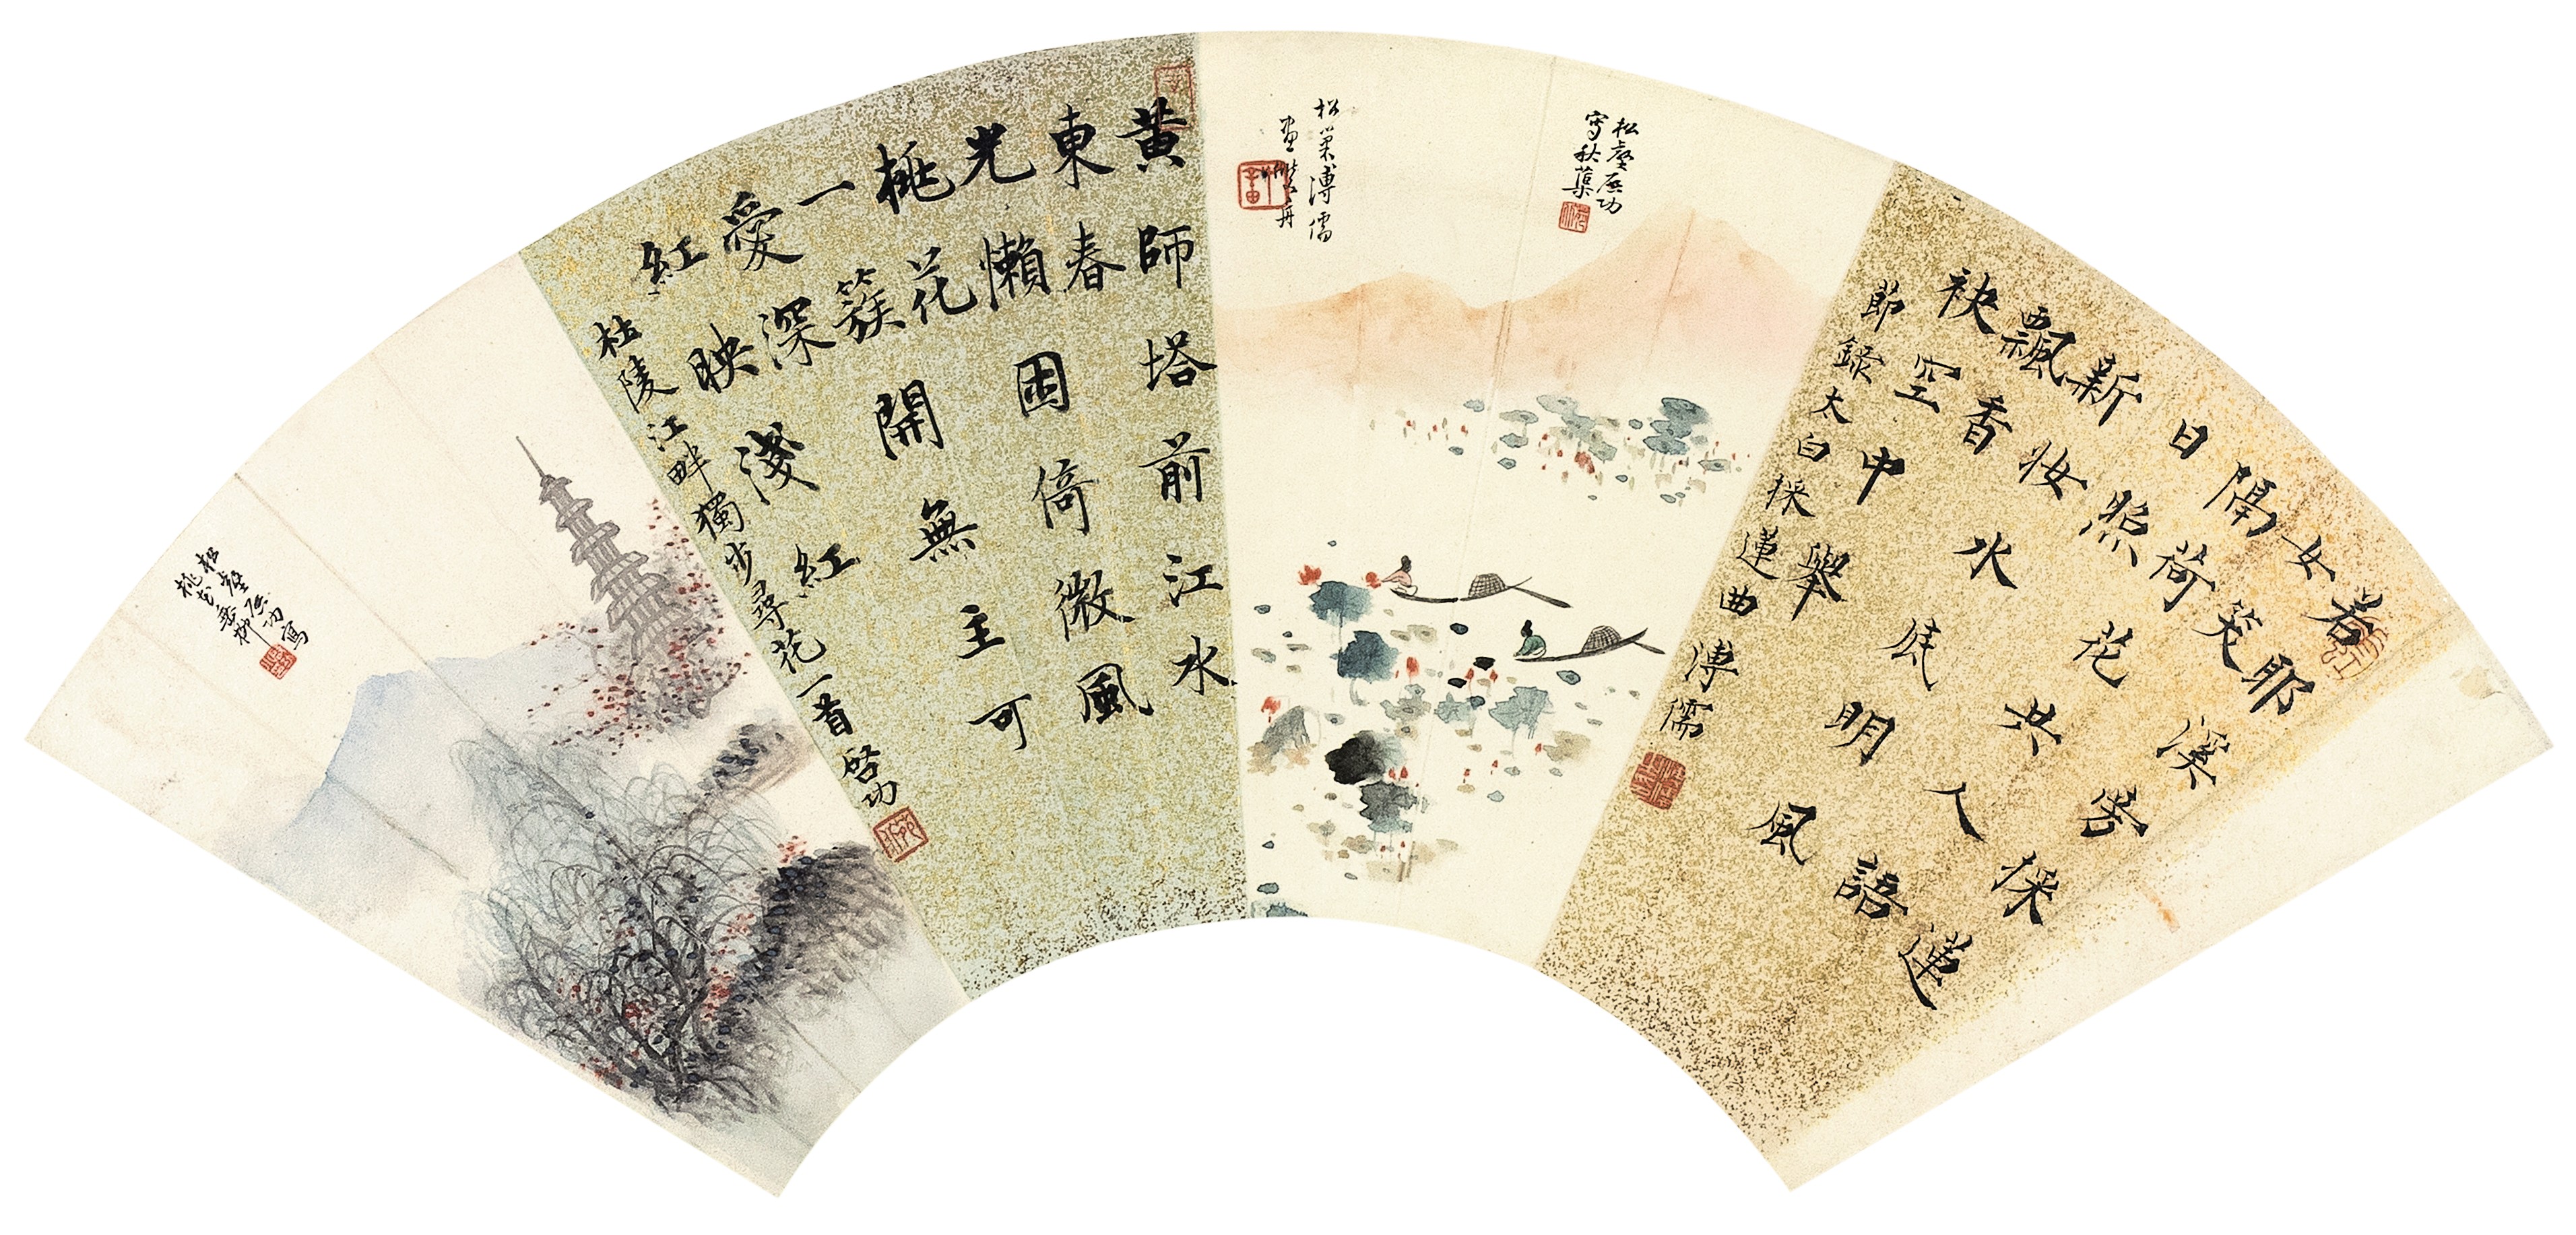 若耶溪旁採蓮
女笑
隔荷花共人語
日照
新妝水底明風
飄香
袂空中舉
節錄太白採蓮曲 溥儒
松壑啟功
寫秋蕖
松巢溥儒
畫舟
黃師塔前江水
東春
光懶困倚微風
桃花
一簇開無主可
愛深
紅映淺紅
杜陵江畔獨步尋花一首 啓功
松壑啟功寫
桃花垂柳